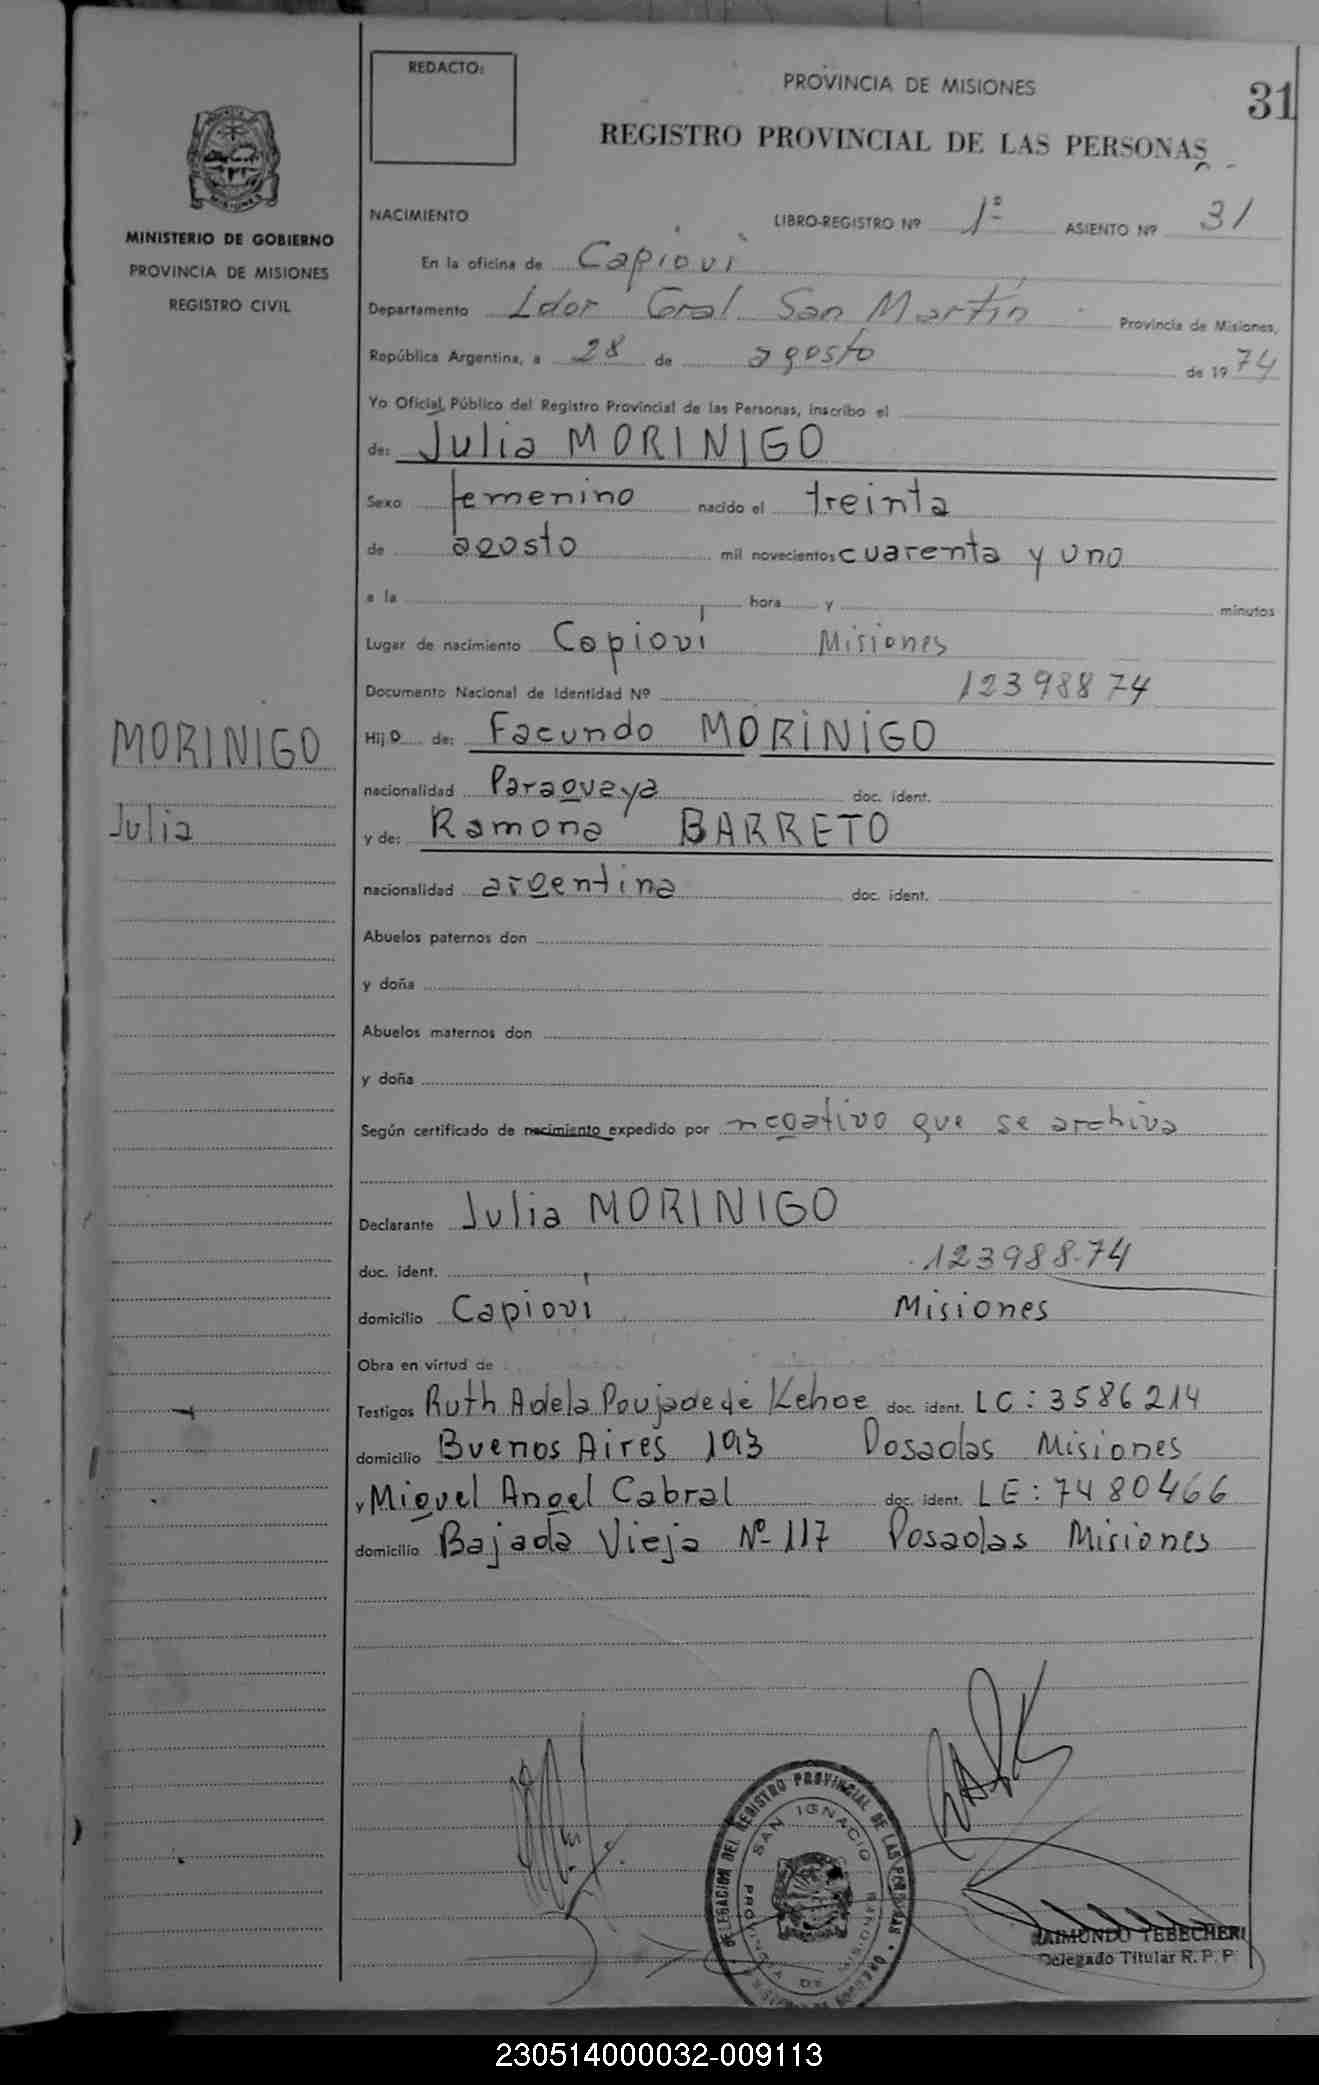 REDACTO:
PROVINCIA DE MISIONES
31
REGISTRO PROVINCIAL DE LAS PERSONAS
MISIONES
MINISTERIO DE GOBIERNO
PROVINCIA DE MISIONES
REGISTRO CIVIL
NACIMIENTO LIBRO-REGISTRO Nº 1º ASIENTO Nº 31
En la oficina de Capioví
Departamento Ldor Gral San Martín Provincia de Misiones,
República Argentina, a 28 de agosto de 1974
Yo Oficial Público del Registro Provincial de las Personas, inscribo el
de: Julia MORINIGO
Sexo femenino nacido el treinta
de agosto mil novecientos cuarenta y uno
a la hora y minutos
Lugar de nacimiento Capioví Misiones
Documento Nacional de Identidad Nº 12398874
MORINIGO
Julia
Hij o de: Facundo MORINIGO
nacionalidad Paraguaya doc. ident.
y de: Ramona BARRETO
nacionalidad argentina doc. ident.
Abuelos paternos don
y doña
Abuelos maternos don
y doña
Según certificado de nacimiento expedido por negativo que se archiva
Declarante Julia MORINIGO
doc. ident. 12398874
domicilio Capioví Misiones
Obra en virtud de
Testigos Ruth Adela Poujade de Kehoe doc. ident. LC: 3586214
domicilio Buenos Aires 193 Posadas Misiones
y Miguel Angel Cabral doc. ident. LE: 7480466
domicilio Bajada Vieja Nº 117 Posadas Misiones
DELEGACION DEL REGISTRO PROVINCIAL DE LAS PERSONAS
SAN IGNACIO
RAIMUNDO TEBECHERI
Delegado Titular R. P. P.
230514000032-009113